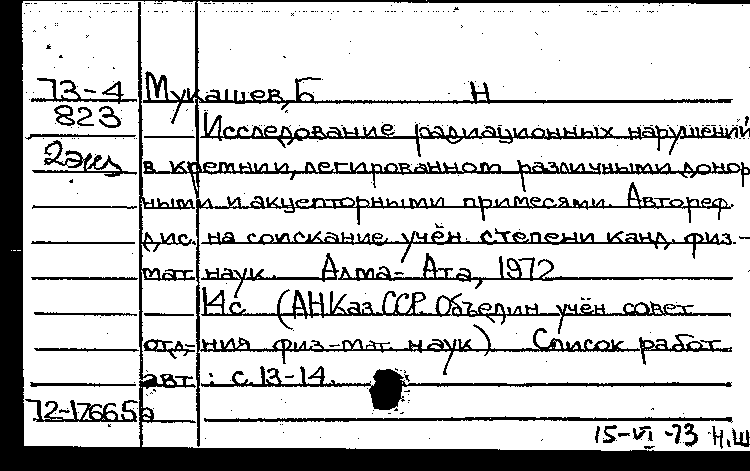 73-4 Мукашев, Б Н
823
Исследование радиационных нарушений
2экз в кремнии, легированном различными донор
ными и акцепторными примесями. Автореф.
дис. на соискание учён. степени канд. физ.-
мат. наук. Алма-Ата, 1972.
14с (АН Каз.ССР. Объедин учён совет
отд-ния физ-мат наук) Список работ
авт.: с.13-14.
72-17665а
15-VI-73 Н.Ш